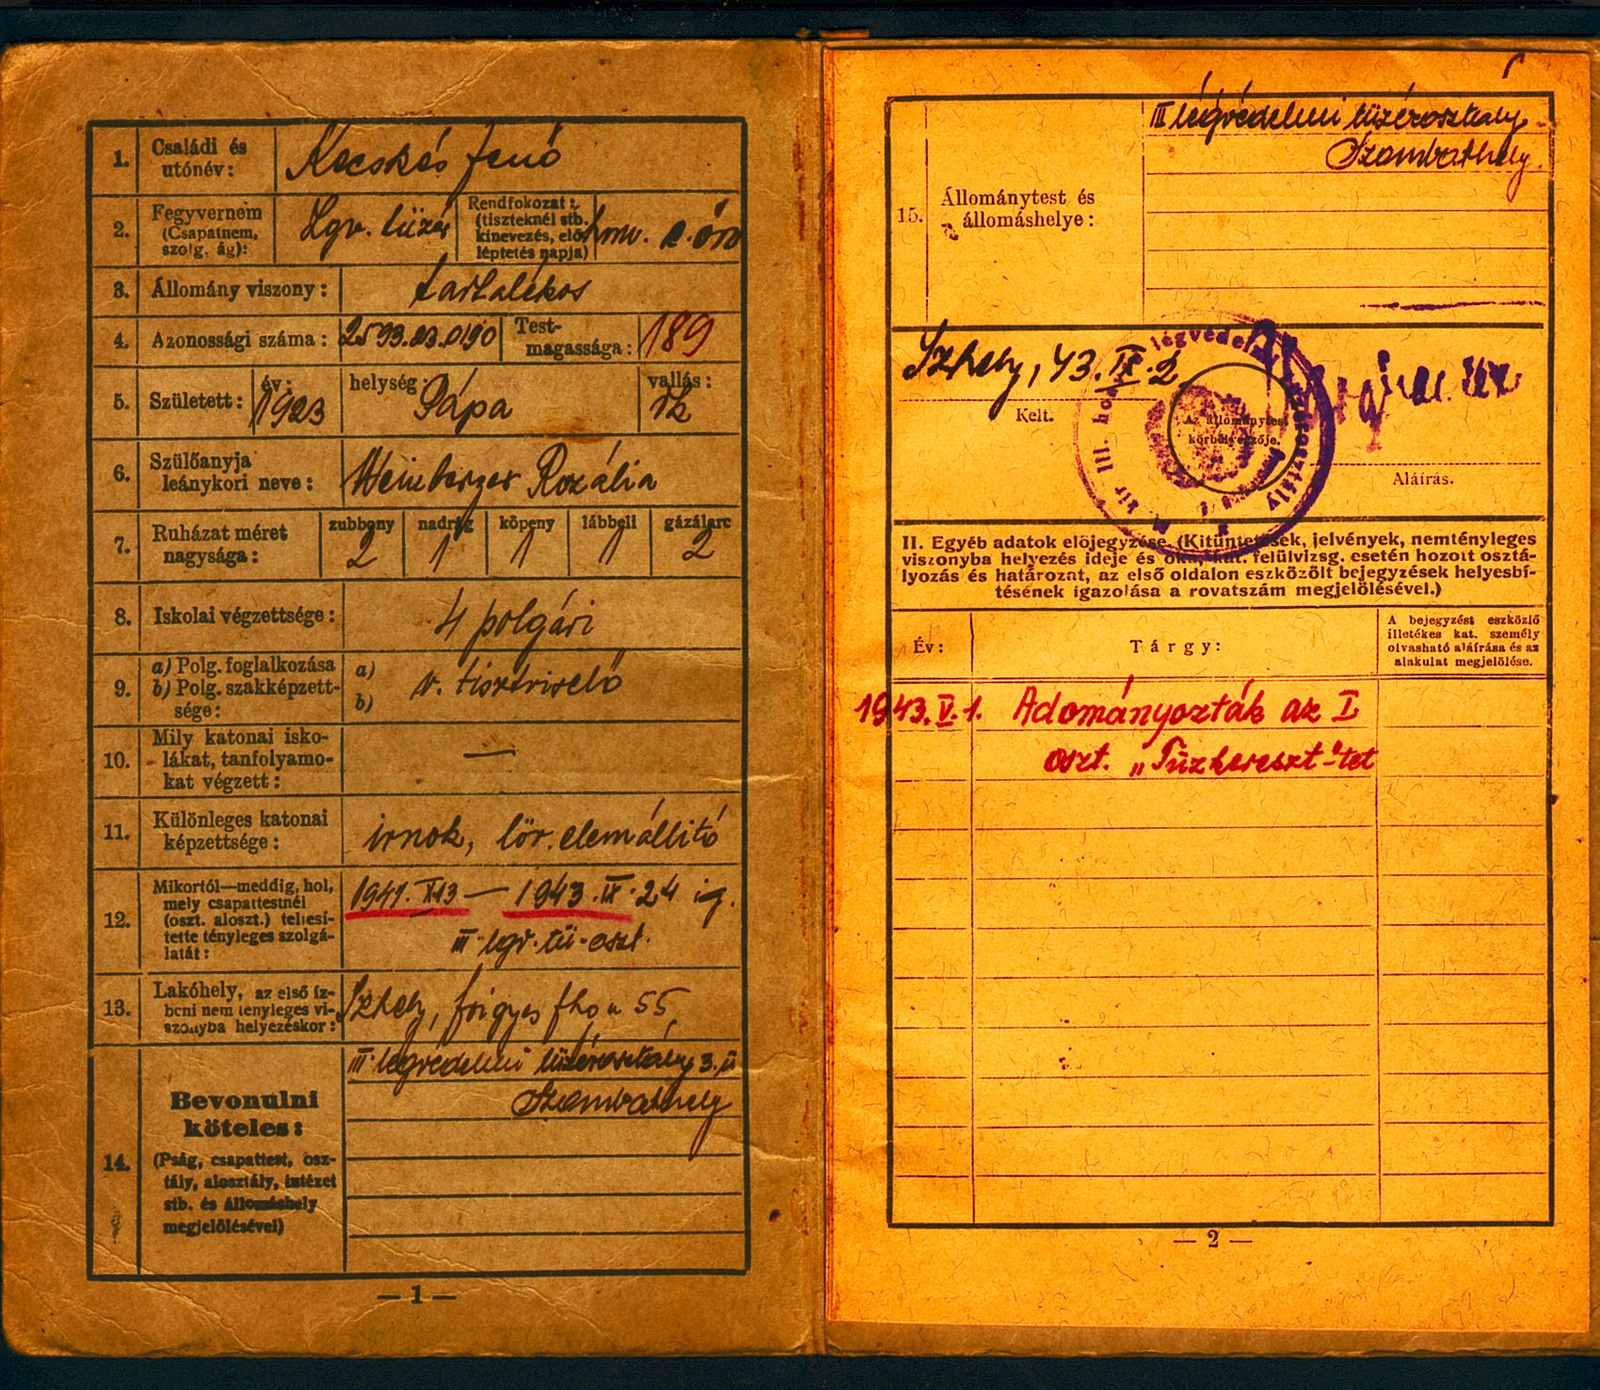 1. Családi és
utónév: Kecskés Jenő
2. Fegyvernem
(Csapatnem,
szolg. ág): Lgv. tüzér
Rendfokozat:
(tiszteknél stb.
kinevezés, elő-
léptetés napja) hnv. őrv
3. Állomány viszony: tartalékos
4. Azonossági száma: 2593.03.0190
Test-
magassága: 189
5. Született: év: 1923 helység: Pápa vallás: rk
6. Szülőanyja
leánykori neve: Weinberger Rozália
7. Ruházat méret
nagysága:
zubbony nadrág köpeny lábbeli gázálarc
2 1 1 1 2
8. Iskolai végzettsége: 4 polgári
9. a) Polg. foglalkozása
b) Polg. szakképzett-
sége:
a) v. tisztviselő
b)
10. Mily katonai isko-
lákat, tanfolyamo-
kat végzett: —
11. Különleges katonai
képzettsége: irnok, lőr. elemállitó
12. Mikortól—meddig, hol,
mely csapattestnél
(oszt. aloszt.) teljesí-
tette tényleges szolgá-
latát:
1941. XII.13 — 1943. IX. 24 ig.
III. lgv. tü. oszt.
13. Lakóhely, az első íz-
beni nem tényleges vi-
szonyba helyezéskor: Szhely, frigyes fhg u 55
14. Bevonulni
köteles:
(Pság, csapattest, osz-
tály, alosztály, intézet
stb. és állomáshely
megjelölésével)
III. légvédelmi tüzérosztály 3. ü
Szombathely
— 1 —
15. Állománytest és
állomáshelye:
III légvédelmi tüzérosztály
Szombathely
Szhely, 43. IX. 2
Kelt.
m. kir III. honv légvédelmi tüzérosztály
Az állománytest
körbélyegzője.
Aláírás.
II. Egyéb adatok előjegyzése. (Kitüntetések, jelvények, nemtényleges
viszonyba helyezés ideje és oka, kat. felülvizsg. esetén hozott osztá-
lyozás és határozat, az első oldalon eszközölt bejegyzések helyesbí-
tésének igazolása a rovatszám megjelölésével.)
Év: Tárgy:
A bejegyzést eszközlő
illetékes kat. személy
olvasható aláírása és az
alakulat megjelölése.
1943. V. 1. Adományozták az I.
oszt. „Tűzkereszt"-tet
— 2 —